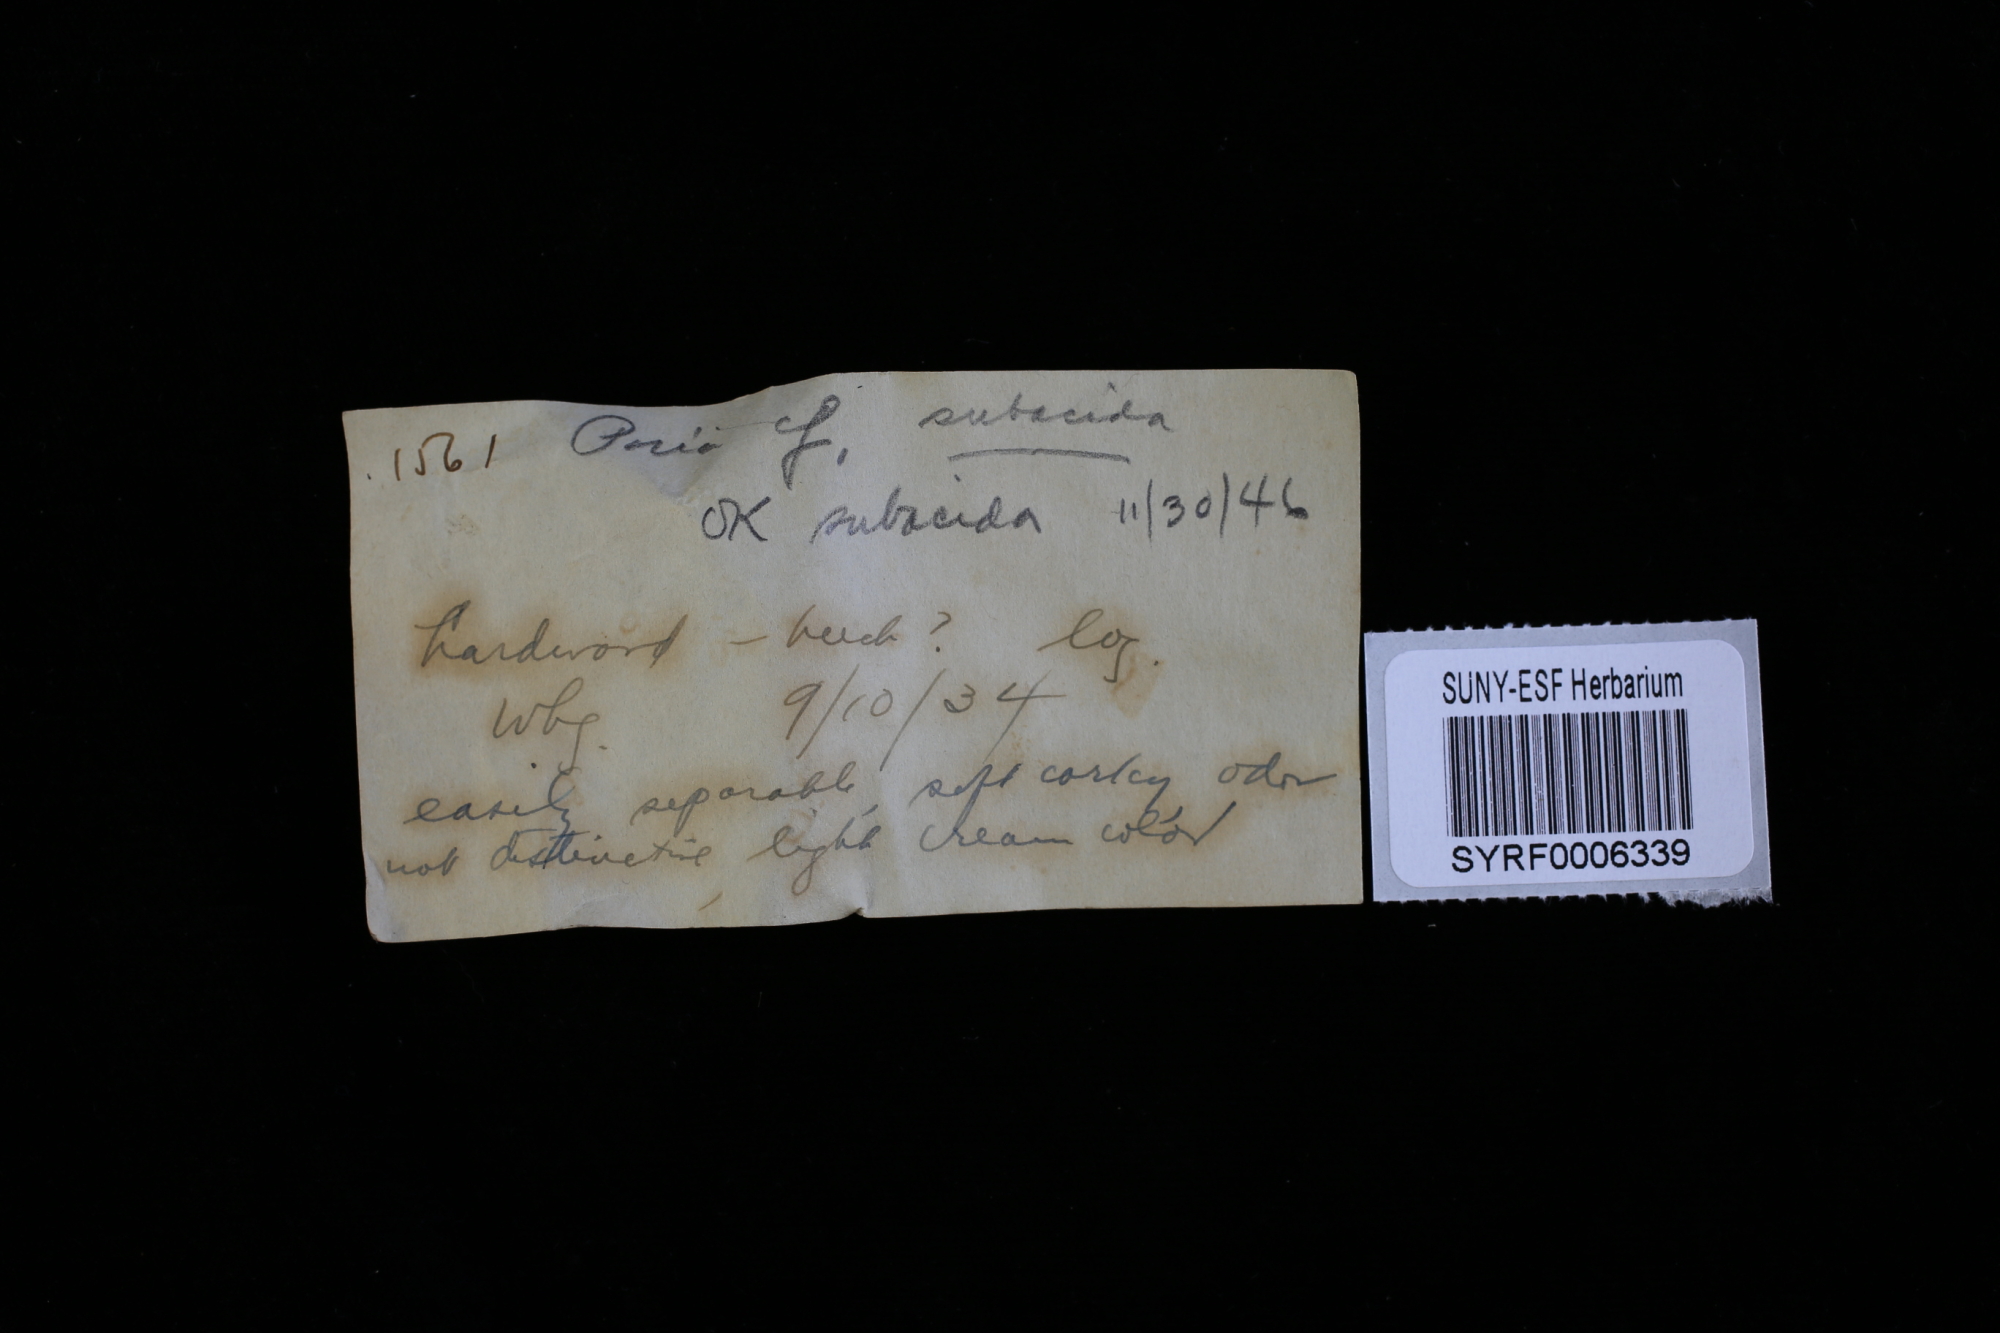 1561 Poria cf. subacida
OK subacida 11/30/46
hardwood – beech? log.
Wbg. 9/10/34
easily separable, soft corky odor
not distinctive, light cream color
SUNY-ESF Herbarium
SYRF0006339